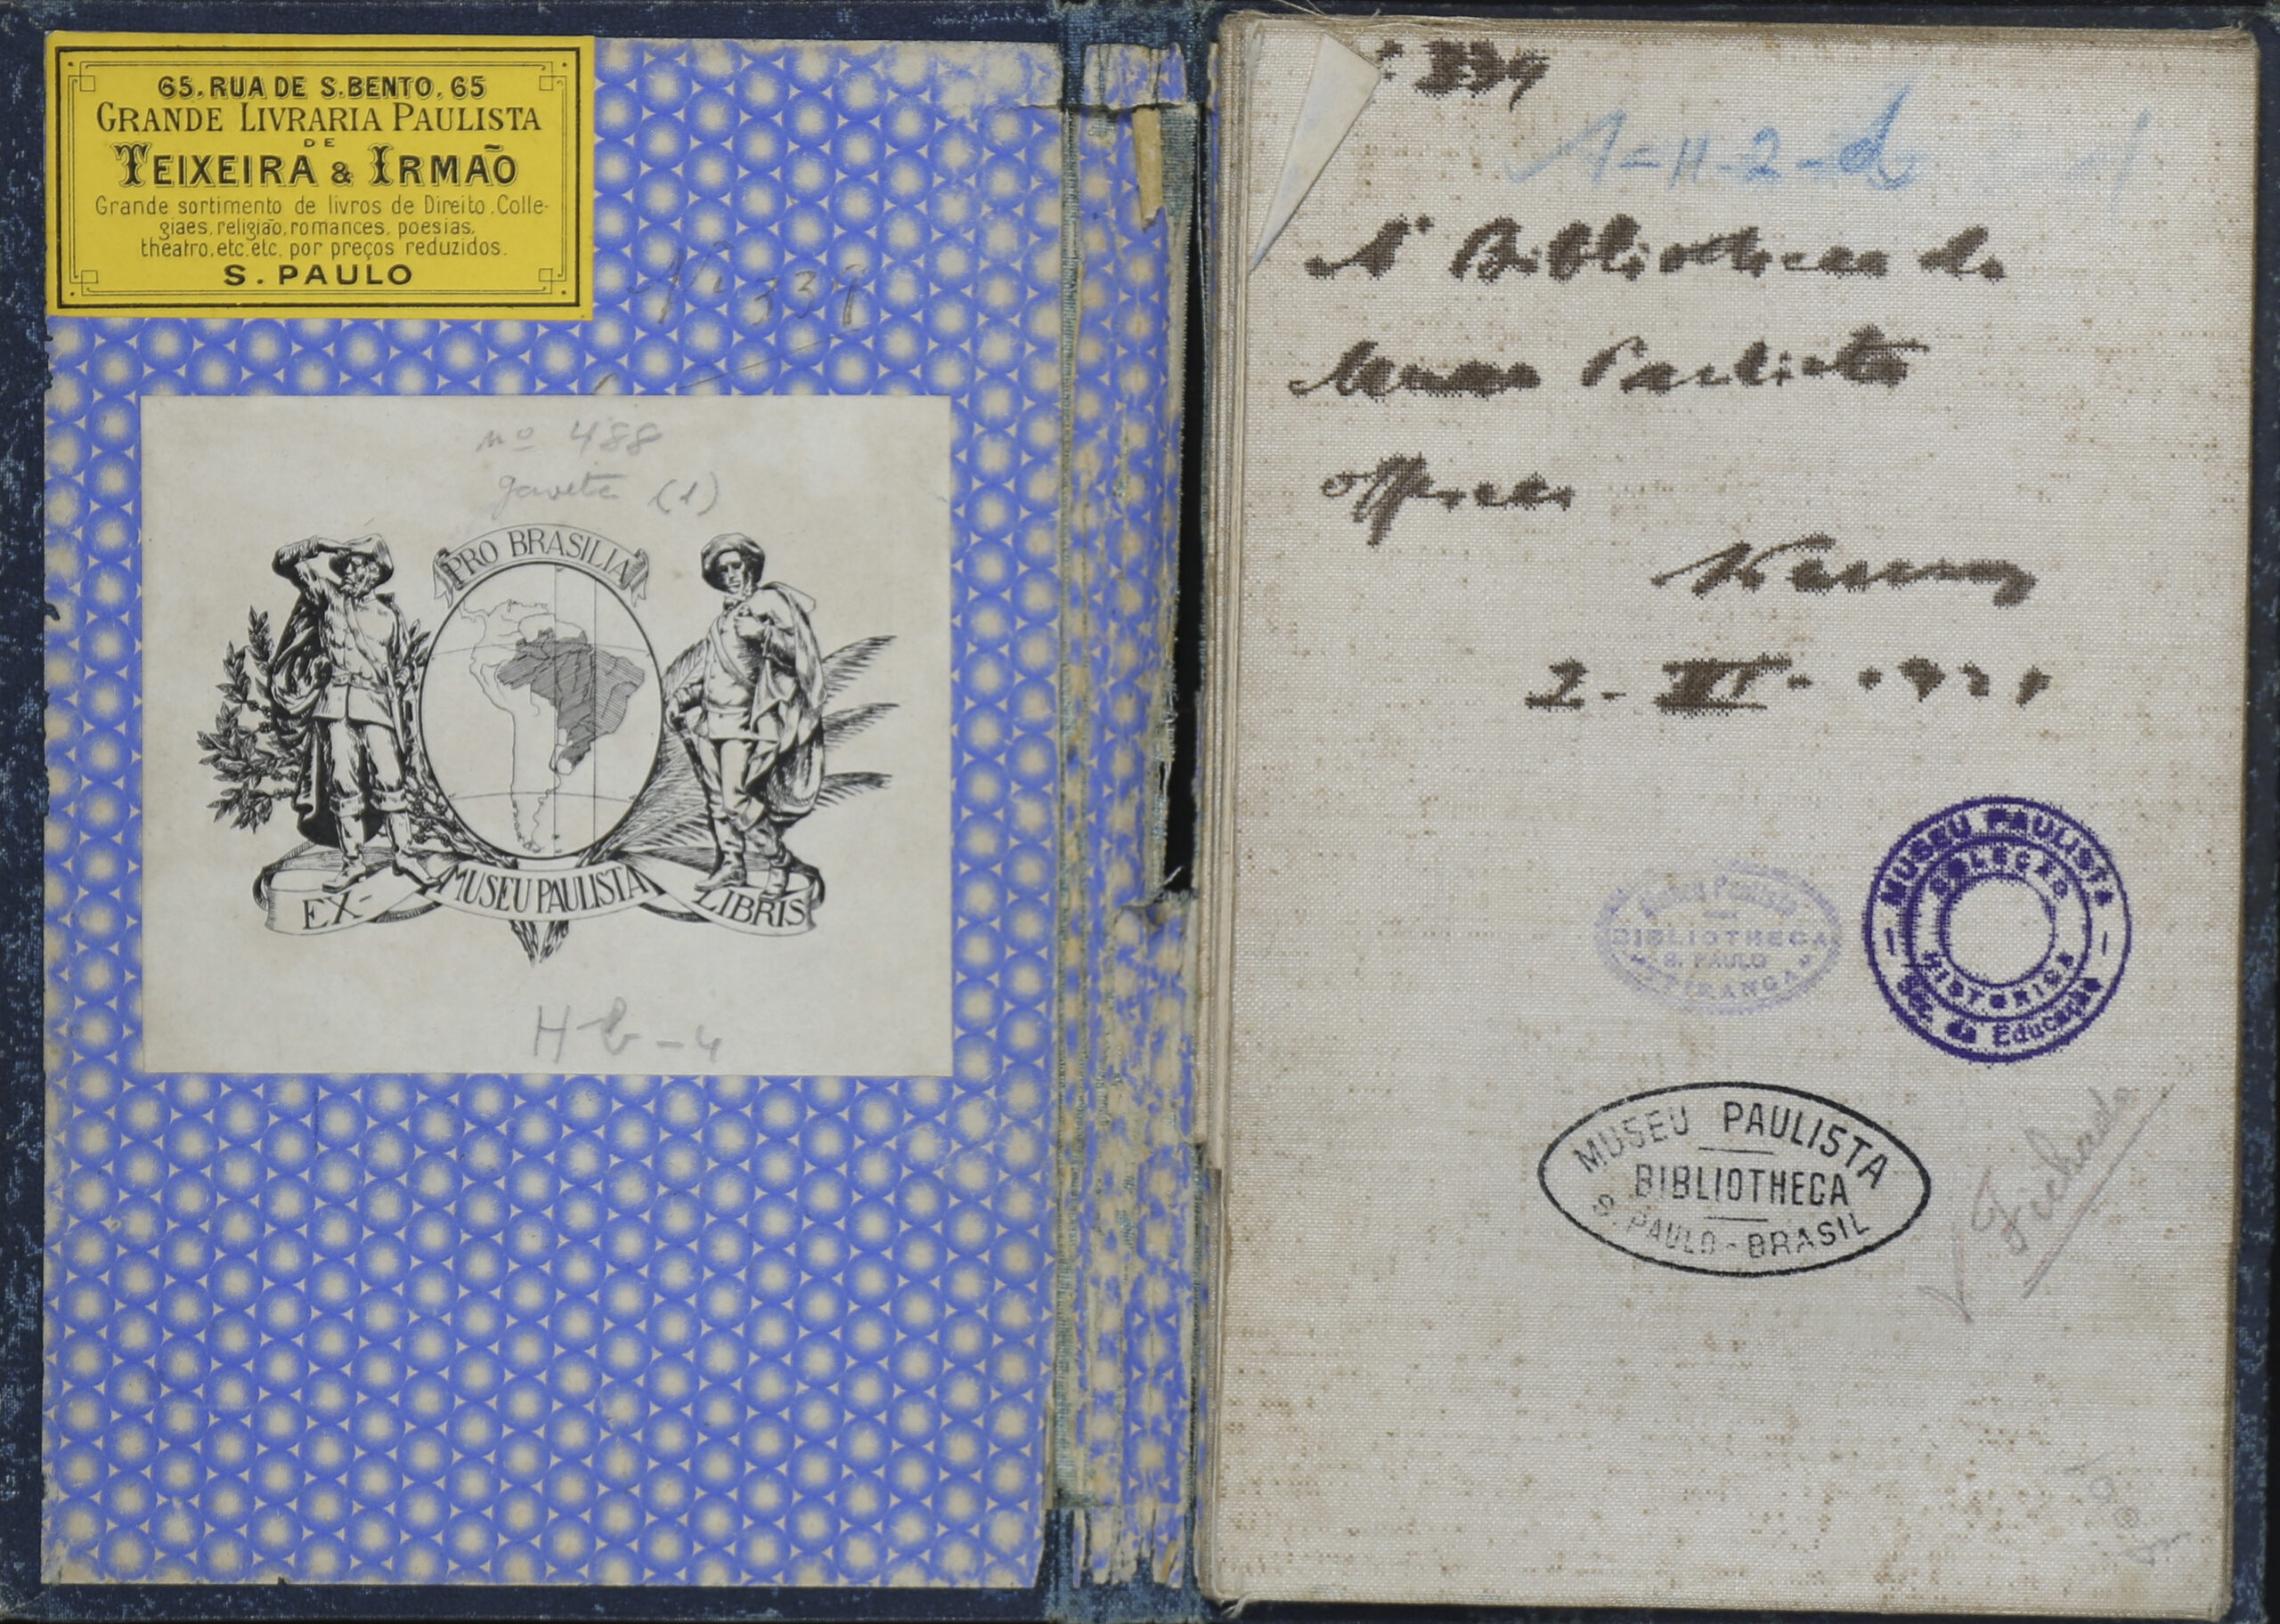 65, RUA DE S. BENTO, 65
GRANDE LIVRARIA PAULISTA
DE
TEIXEIRA & IRMÃO
Grande sortimento de livros de Direito, Colle-
giaes, religião, romances, poesias,
theatro, etc. etc. por preços reduzidos.
S. PAULO
Nº 339
nº 488
gaveta (1)
PRO BRASILIA
EX- MUSEU PAULISTA LIBRIS
Hb-4
339
1-11-2-d
Aº Bibliotheca do
Museu Paulista
offerece
2-XI-1921
Museu Paulista
BIBLIOTHECA
S. PAULO
YPIRANGA
MUSEU PAULISTA
COLEÇÃO
HISTORICA
Sec. da Educação
MUSEU PAULISTA
BIBLIOTHECA
S. PAULO - BRASIL
Fichado